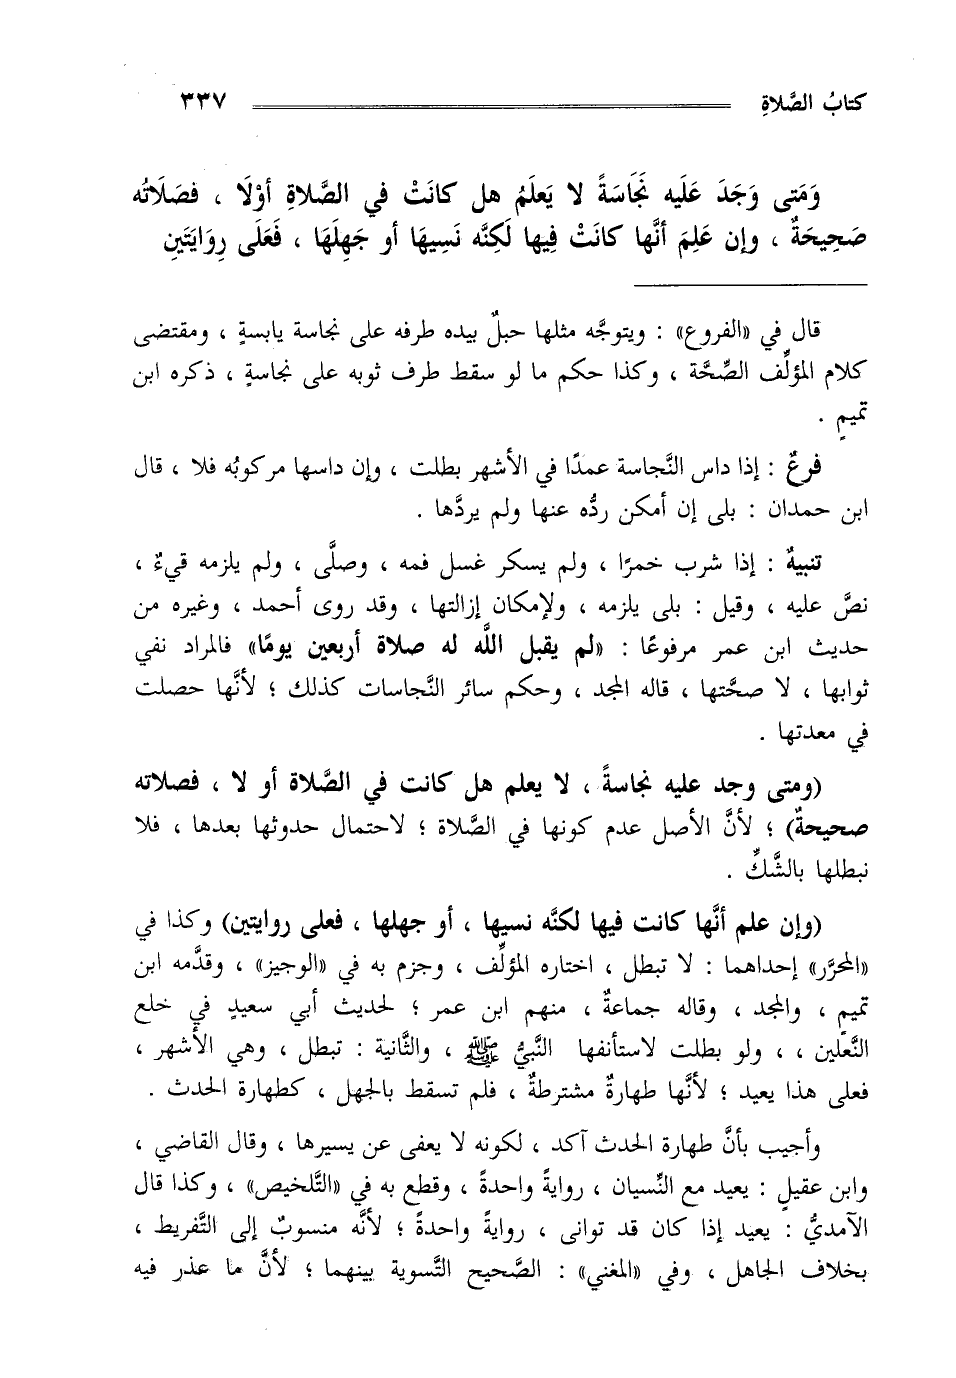 كتابُ الصَّلاةِ ٣٣٧
وَمَتى وَجَدَ عَلَيه نَجَاسَةً لا يَعلَمُ هل كانَتْ في الصَّلاةِ أوْلَا ، فصَلَاتُه
صَحِيحَةٌ ، وإن عَلِمَ أنَّها كانَتْ فِيها لَكِنَّه نَسِيهَا أو جَهِلَهَا ، فَعَلَى رِوَايَتَينِ
قال في «الفروع» : ويتوجَّه مثلها حبلٌ بيده طرفه على نجاسة يابسةٍ ، ومقتضى
كلام المؤلِّف الصِّحَّة ، وكذا حكم ما لو سقط طرف ثوبه على نجاسةٍ ، ذكره ابن
تميمٍ .
فرعٌ : إذا داس النَّجاسة عمدًا في الأشهر بطلت ، وإن داسها مركوبُه فلا ، قال
ابن حمدان : بلى إن أمكن ردُّه عنها ولم يردَّها .
تنبيهٌ : إذا شرب خمرًا ، ولم يسكر غسل فمه ، وصلَّى ، ولم يلزمه قيءٌ ،
نصَّ عليه ، وقيل : بلى يلزمه ، ولإمكان إزالتها ، وقد روى أحمد ، وغيره من
حديث ابن عمر مرفوعًا : «لم يقبل اللَّه له صلاة أربعين يومًا» فالمراد نفي
ثوابها ، لا صحَّتها ، قاله المجد ، وحكم سائر النَّجاسات كذلك ؛ لأنَّها حصلت
في معدتها .
(ومتى وجد عليه نجاسةً ، لا يعلم هل كانت في الصَّلاة أو لا ، فصلاته
صحيحةٌ) ؛ لأنَّ الأصل عدم كونها في الصَّلاة ؛ لاحتمال حدوثها بعدها ، فلا
نبطلها بالشَّكِّ .
(وإن علم أنَّها كانت فيها لكنَّه نسيها ، أو جهلها ، فعلى روايتين) وكذا في
«المحرَّر» إحداهما : لا تبطل ، اختاره المؤلِّف ، وجزم به في «الوجيز» ، وقدَّمه ابن
تميمٍ ، والمجد ، وقاله جماعةٌ ، منهم ابن عمر ؛ لحديث أبي سعيدٍ في خلع
النَّعلين ، ، ولو بطلت لاستأنفها النَّبيُّ ﷺ ، والثَّانية : تبطل ، وهي الأشهر ،
فعلى هذا يعيد ؛ لأنَّها طهارةٌ مشترطةٌ ، فلم تسقط بالجهل ، كطهارة الحدث .
وأجيب بأنَّ طهارة الحدث آكد ، لكونه لا يعفى عن يسيرها ، وقال القاضي ،
وابن عقيلٍ : يعيد مع النِّسيان ، روايةً واحدةً ، وقطع به في «التَّلخيص» ، وكذا قال
الآمديُّ : يعيد إذا كان قد توانى ، روايةً واحدةً ؛ لأنَّه منسوبٌ إلى التَّفريط ،
بخلاف الجاهل ، وفي «المغني» : الصَّحيح التَّسوية بينهما ؛ لأنَّ ما عذر فيه